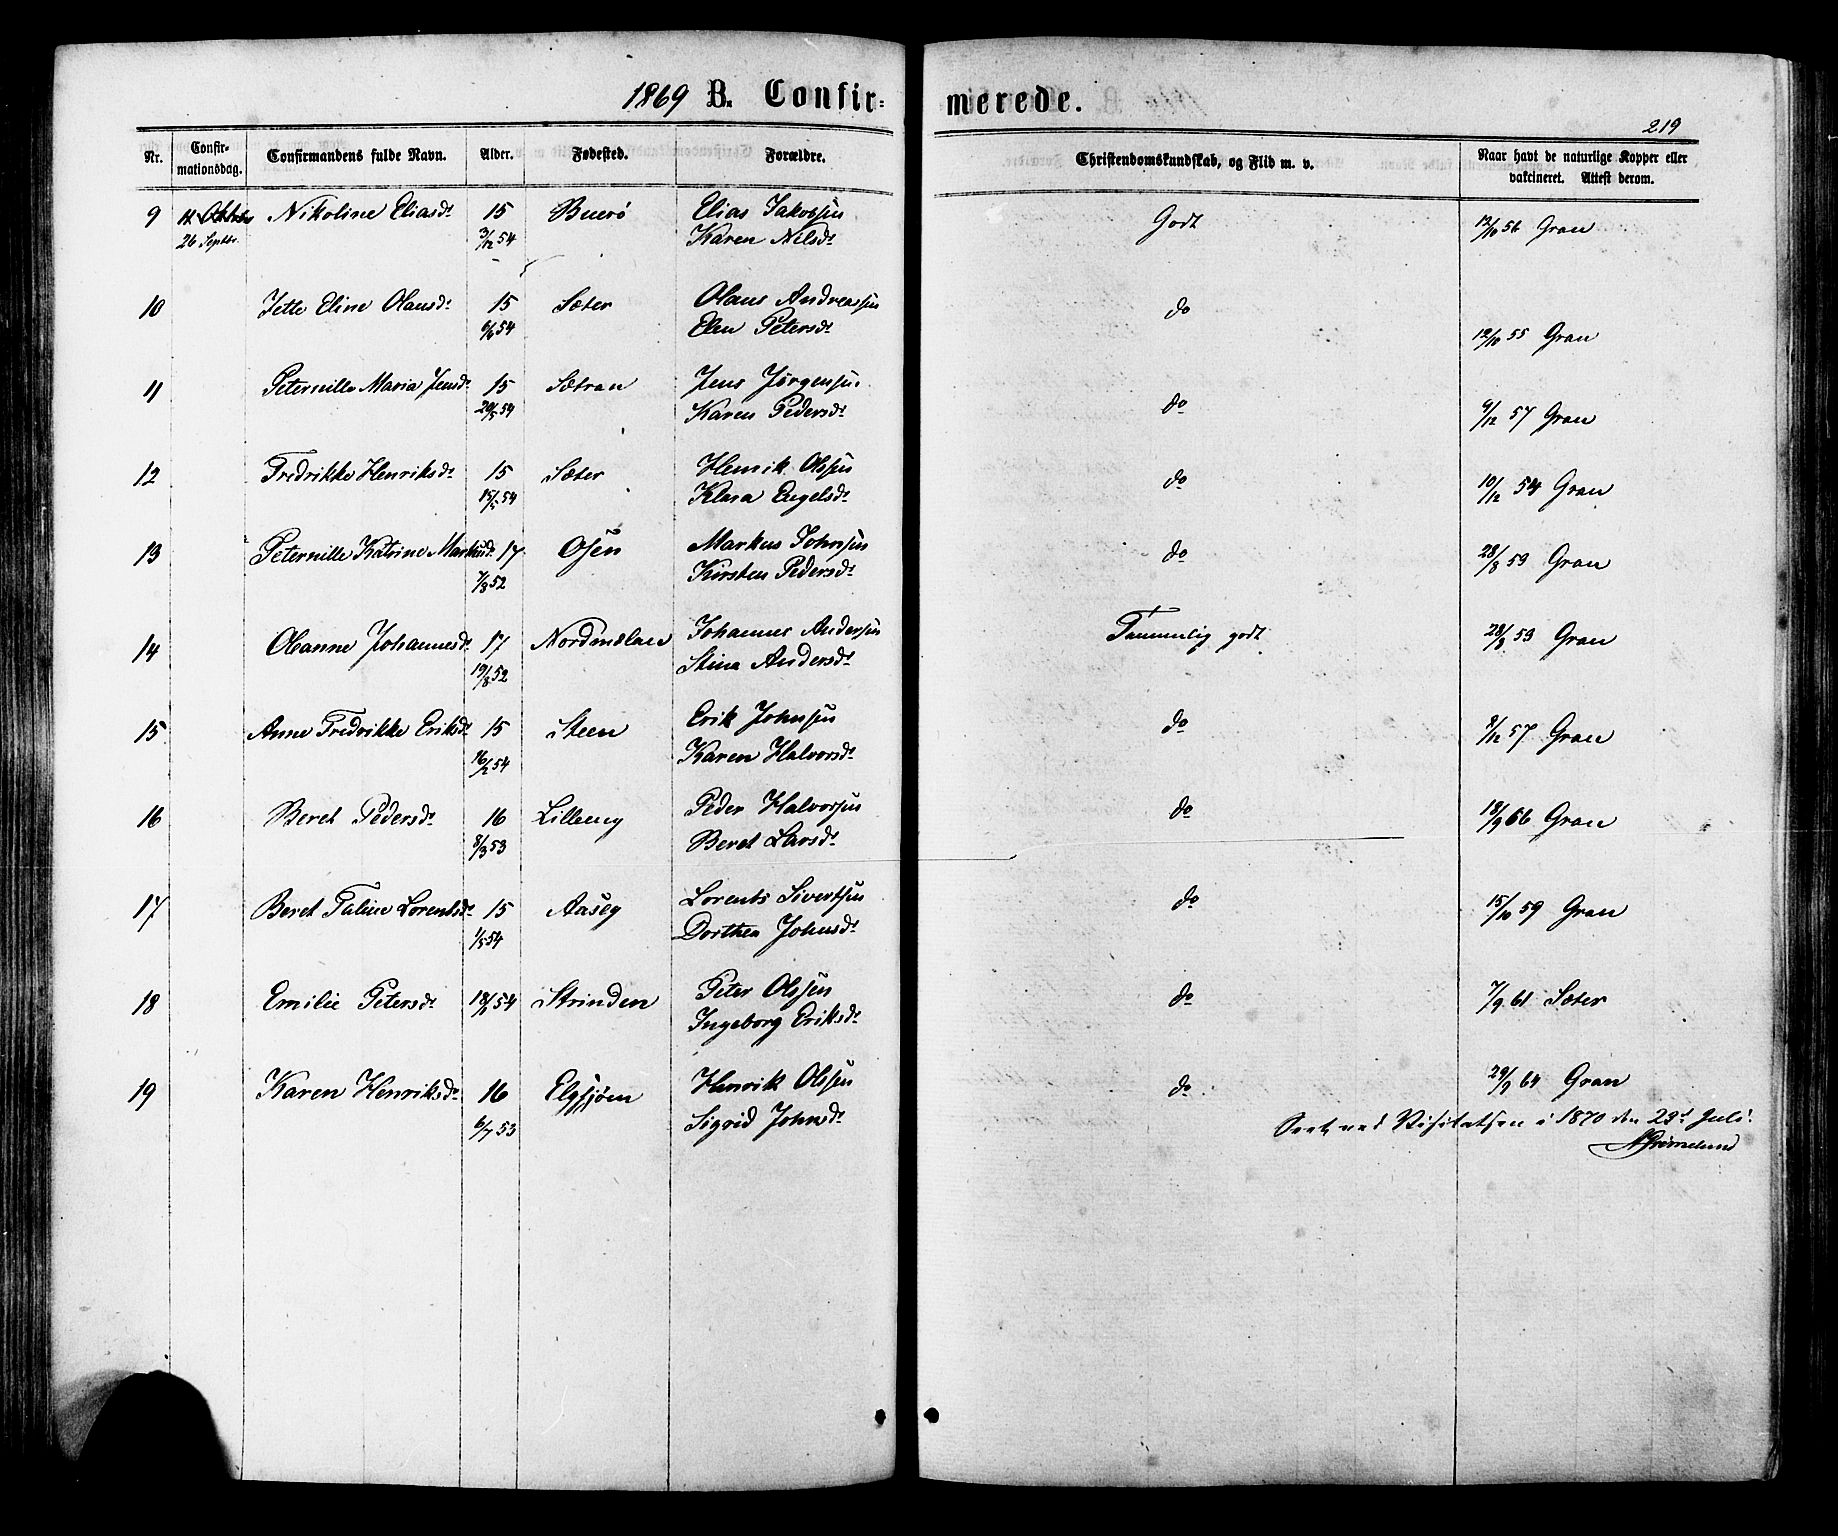 1869 B. Confir- merede.
219
Nr. Confir-mationsdag. Confirmandens fulde Navn. Alder. Fødested. Forældre. Christendomskundskab, og Flid m. v. Naar havt de naturlige Kopper eller vakcineret. Attest derom.
9 Nikoline Eliasdr 15 Buerø Elias Jakobsen Godt 12/10 56 Gran
26 Septbr. 3/12 54 Karen Nilsdr
10 Jette Eline Olausdr 15 Sæter Olaus Andreassen do
6/6 54 Elen Petersdr 12/10 55 Gran
11 Peternille Maria Jensdr 15 Sætran Jens Jørgensen do
20/5 54 Karen Pedersdr 6/12 57 Gran
12 Fredrikke Henriksdr 15 Sæter Henrik Olssen do 10/12 54 Gran
15/5 54 Klara Engelsdr
13 Peternille Katrine Markusdr 17 Osen Markus Johnsen do 28/8 59 Gran
7/8 52 Kirsten Pedersdr
14 Olianne Johannesdr 17 Nordmelan Johannes Andersen Temmelig godt 28/8 53 Gran
19/8 52 Stina Andersdr
15 Anne Fredrikke Eriksdr 15 Steen Erik Johnsen do 8/12 57 Gran
16/2 54 Karen Halvorsdr
16 Beret Pedersdr 16 Lilleeng Peder Halvorsen do 18/9 66 Gran
8/3 53 Beret Larsdr
17 Beret Taline Lorentsdr 15 Aaseg Lorents Sivertsen do 15/10 59 Gran
1/5 54 Dorthea Johnsdr
18 Emilie Petersdr 54 Strinden Peter Olssen do 7/9 61 Sæter
Ingeborg Eriksdr
19 Karen Henriksdr 16 Elgsjøen Henrik Olssen do 29/9 64 Gran
6/7 53 Sigrid Johnsdr
Seet ved Visitatsen i 1870 den 23d Juli.
AGrimelund